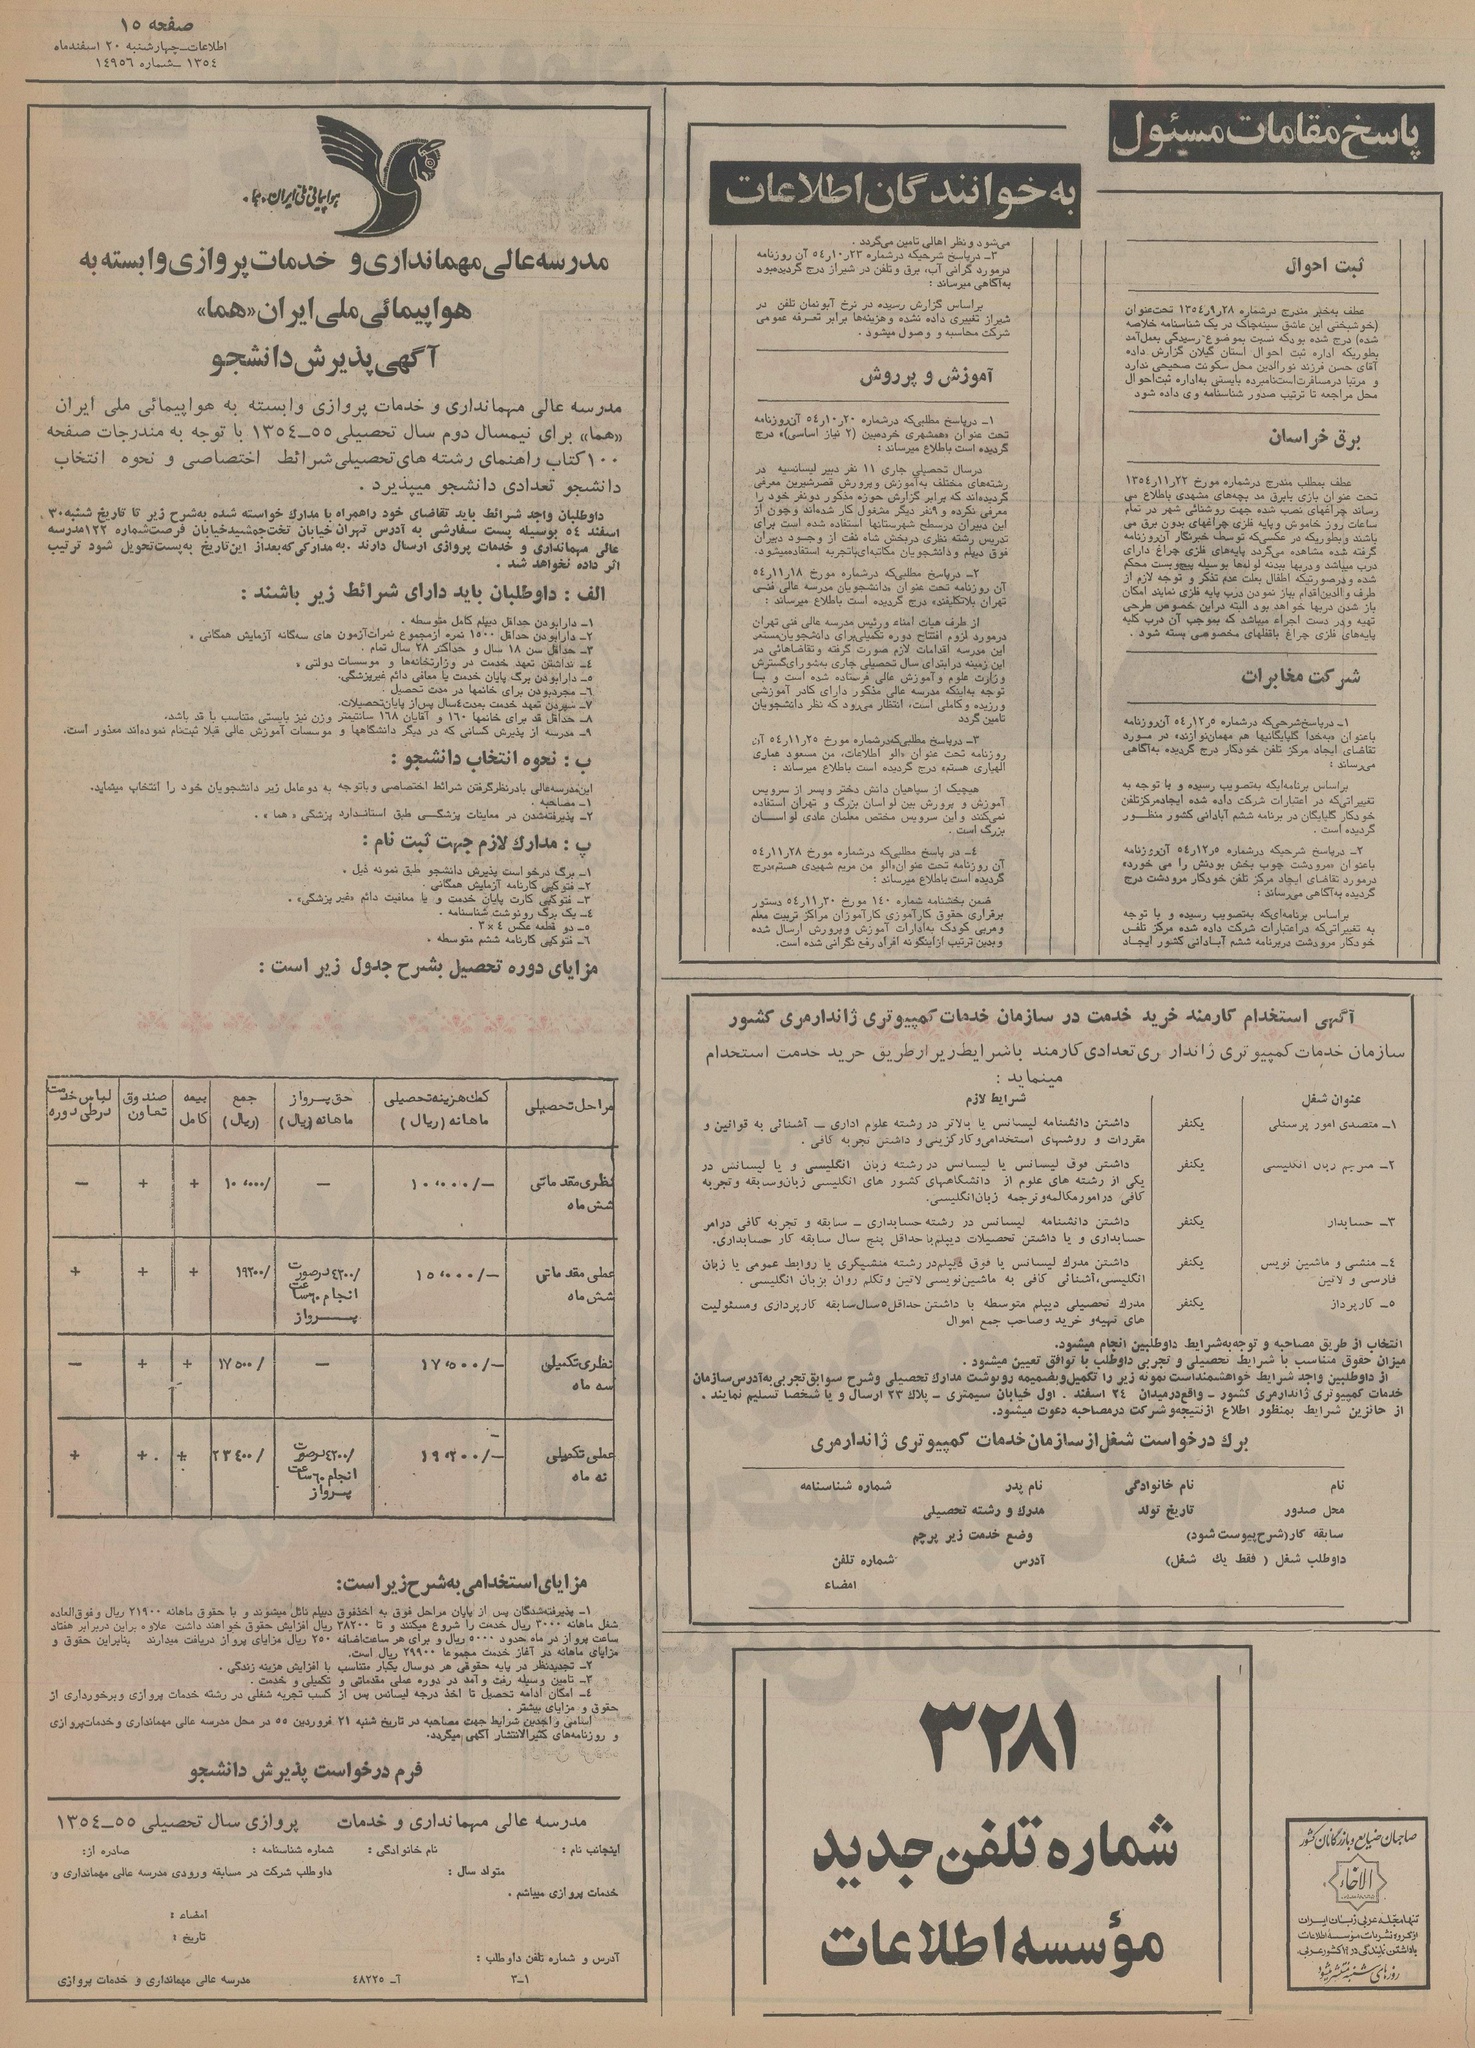 صفحه ۱۵
اطلاعات_چهارشنبه ۲۰ اسفندماه
۱۳۵۴ _شماره ۱۴۹۵۶
پاسخ مقامات مسئول
به خوانندگان اطلاعات
ثبت احوال
عطف به‌خبر مندرج در شماره ۲۸ر۹ر۱۳۵۴ تحت عنوان
(خوشبختی این عاشق سینه‌چاک در یک شناسنامه خلاصه
شده) درج شده بود که نسبت بموضوع رسیدگی بعمل‌آمد
بطوریکه اداره ثبت احوال استان گیلان گزارش داده
آقای حسن فرزند نورالدین محل سکونت صحیحی ندارد
و مرتبا در مسافرت است نامبرده بایستی به‌اداره ثبت احوال
محل مراجعه تا ترتیب صدور شناسنامه وی داده شود
برق خراسان
عطف بمطلب مندرج در شماره مورخ ۲۲ر۱۱ر۱۳۵۴
تحت عنوان بازی بابرق مد بچه‌های مشهدی باطلاع می
رساند چراغهای نصب شده جهت روشنائی شهر در تمام
ساعات روز خاموش و پایه فلزی چراغهای بدون برق می
باشند و بطوریکه در عکسی‌که توسط خبرنگار آن روزنامه
گرفته شده مشاهده می‌گردد پایه‌های فلزی چراغ دارای
درب میباشد و دربها ببدنه لوله‌ها بوسیله پیچ و بست محکم
شده و درصورتیکه اطفال بعلت عدم تذکر و توجه لازم از
طرف والدین اقدام بباز نمودن درب پایه فلزی نمایند امکان
باز شدن دربها خواهد بود البته در این خصوص طرحی
تهیه و در دست اجراء میباشد که بموجب آن درب کلیه
پایه‌های فلزی چراغ باقفلهای مخصوصی بسته شود .
شرکت مخابرات
۱_ در پاسخ شرحی‌که در شماره ۵ر۱۲ر۵۴ آن روزنامه
باعنوان «به‌خدا گلپایگانیها هم مهمان‌نوازند» در مورد
تقاضای ایجاد مرکز تلفن خودکار درج گردیده به‌آگاهی
می‌رساند :
براساس برنامه‌ایکه به‌تصویب رسیده و با توجه به
تغییراتی‌که در اعتبارات شرکت داده شده ایجاد مرکز تلفن
خودکار گلپایگان در برنامه ششم آبادانی کشور منظور
گردیده است .
۲_ در پاسخ شرحیکه در شماره ۵ر۱۲ر۵۴ آن روزنامه
باعنوان «مرودشت چوب بخش بودنش را می خورد»
در مورد تقاضای ایجاد مرکز تلفن خودکار مرودشت درج
گردیده به‌آگاهی می‌رساند :
براساس برنامه‌ای‌که به‌تصویب رسیده و با توجه
به تغییراتی‌که در اعتبارات شرکت داده شده مرکز تلفن
خودکار مرودشت در برنامه ششم آبادانی کشور ایجاد
می‌شود و نظر اهالی تامین می‌گردد .
۳_ در پاسخ شرحیکه در شماره ۲۳ر۱۰ر۵۴ آن روزنامه
در مورد گرانی آب، برق و تلفن در شیراز درج گردیده بود
به‌آگاهی میرساند :
براساس گزارش رسیده در نرخ آبونمان تلفن در
شیراز تغییری داده نشده و هزینه‌ها برابر تعرفه عمومی
شرکت محاسبه و وصول میشود .
آموزش و پرورش
۱_ در پاسخ مطلبی‌که در شماره ۲۰ر۱۰ر۵۴ آن روزنامه
تحت عنوان «همشهری خرده‌بین (۲ نیاز اساسی)» درج
گردیده است باطلاع میرساند :
در سال تحصیلی جاری ۱۱ نفر دبیر لیسانسیه در
رشته‌های مختلف به‌آموزش و پرورش قصرشیرین معرفی
گردیده‌اند که برابر گزارش حوزه مذکور دو نفر خود را
معرفی نکرده و ۹ نفر دیگر مشغول کار شده‌اند و چون از
این دبیران در سطح شهرستانها استفاده شده است برای
تدریس رشته نظری در بخش شاه نفت از وجود دبیران
فوق دیپلم و دانشجویان مکاتبه‌ای باتجربه استفاده میشود.
۲_ در پاسخ مطلبی‌که در شماره مورخ ۱۸ر۱۱ر۵۴
آن روزنامه تحت عنوان «دانشجویان مدرسه عالی فنی
تهران بلاتکلیفند» درج گردیده است باطلاع میرساند :
از طرف هیات امناء و رئیس مدرسه عالی فنی تهران
در مورد لزوم افتتاح دوره تکمیلی برای دانشجویان مستعد
این مدرسه اقدامات لازم صورت گرفته و تقاضاهائی در
این زمینه در ابتدای سال تحصیلی جاری به‌شورای گسترش
وزارت علوم و آموزش عالی فرستاده شده است و با
توجه به‌اینکه مدرسه عالی مذکور دارای کادر آموزشی
ورزیده و کاملی است، انتظار می‌رود که نظر دانشجویان
تامین گردد
۳_ در پاسخ مطلبی‌که در شماره مورخ ۲۵ر۱۱ر۵۴ آن
روزنامه تحت عنوان «الو اطلاعات، من مسعود هماری
الهیاری هستم» درج گردیده است باطلاع میرساند :
هیچیک از سپاهیان دانش دختر و پسر از سرویس
آموزش و پرورش بین لواسان بزرگ و تهران استفاده
نمی‌کنند و این سرویس مختص معلمان عادی لواسان
بزرگ است .
۴_ در پاسخ مطلبی‌که در شماره مورخ ۲۸ر۱۱ر۵۴
آن روزنامه تحت عنوان «الو من مریم شهیدی هستم» درج
گردیده است باطلاع میرساند :
ضمن بخشنامه شماره ۱۴۰ مورخ ۳۰ر۱۱ر۵۴ دستور
برقراری حقوق کارآموزی کارآموزان مراکز تربیت معلم
و مربی کودک به‌ادارات آموزش و پرورش ارسال شده
و بدین ترتیب از اینگونه افراد رفع نگرانی شده است.
آگهی استخدام کارمند خرید خدمت در سازمان خدمات کمپیوتری ژاندارمری کشور
سازمان خدمات کمپیوتری ژاندارمری تعدادی کارمند باشرایط زیر از طریق خرید خدمت استخدام
مینماید :
عنوان شغل
شرایط لازم
۱_ متصدی امور پرسنلی
یکنفر
داشتن دانشنامه لیسانس یا بالاتر در رشته علوم اداری _ آشنائی به قوانین و
مقررات و روشهای استخدامی و کارگزینی و داشتن تجربه کافی .
۲_ مترجم زبان انگلیسی
یکنفر
داشتن فوق لیسانس یا لیسانس در رشته زبان انگلیسی و یا لیسانس در
یکی از رشته های علوم از دانشگاههای کشور های انگلیسی زبان و سابقه و تجربه
کافی در امور مکالمه و ترجمه زبان انگلیسی.
۳_ حسابدار
یکنفر
داشتن دانشنامه لیسانس در رشته حسابداری _ سابقه و تجربه کافی در امر
حسابداری و یا داشتن تحصیلات دیپلم با حداقل پنج سال سابقه کار حسابداری.
۴_ منشی و ماشین نویس
فارسی و لاتین
یکنفر
داشتن مدرک لیسانس یا فوق دیپلم در رشته منشیگری یا روابط عمومی یا زبان
انگلیسی، آشنائی کافی به ماشین‌نویسی لاتین و تکلم روان بزبان انگلیسی .
۵_ کارپرداز
یکنفر
مدرک تحصیلی دیپلم متوسطه با داشتن حداقل ۵ سال سابقه کارپردازی و مسئولیت
های تهیه و خرید و صاحب جمع اموال
انتخاب از طریق مصاحبه و توجه به‌شرایط داوطلبین انجام میشود.
میزان حقوق متناسب با شرایط تحصیلی و تجربی داوطلب با توافق تعیین میشود .
از داوطلبین واجد شرایط خواهشمند است نمونه زیر را تکمیل و بضمیمه رونوشت مدارک تحصیلی و شرح سوابق تجربی به‌آدرس سازمان
خدمات کمپیوتری ژاندارمری کشور _ واقع در میدان ۲۴ اسفند . اول خیابان سیمتری _ پلاک ۲۳ ارسال و یا شخصا تسلیم نمایند .
از حائزین شرایط بمنظور اطلاع از نتیجه و شرکت در مصاحبه دعوت میشود.
برگ درخواست شغل از سازمان خدمات کمپیوتری ژاندارمری
نام نام خانوادگی نام پدر شماره شناسنامه
محل صدور تاریخ تولد مدرک و رشته تحصیلی
سابقه کار (شرح پیوست شود) وضع خدمت زیر پرچم
داوطلب شغل ( فقط یك شغل) آدرس شماره تلفن
امضاء
۳۲۸۱
شماره تلفن جدید
مؤسسه اطلاعات
صاحبان صنایع و بازرگانان کشور
الاخاء
تنها مجله عربی زبان ایران
از گروه نشریات مؤسسه اطلاعات
روزهای شنبه منتشر میشود
هواپیمائی ملی ایران.هما.
مدرسه عالی مهمانداری و خدمات پروازی وابسته به
هواپیمائی ملی ایران «هما»
آگهی پذیرش دانشجو
مدرسه عالی مهمانداری و خدمات پروازی وابسته به هواپیمائی ملی ایران
«هما» برای نیمسال دوم سال تحصیلی ۵۵_۱۳۵۴ با توجه به مندرجات صفحه
۱۰۰ کتاب راهنمای رشته های تحصیلی شرائط اختصاصی و نحوه انتخاب
دانشجو تعدادی دانشجو میپذیرد .
داوطلبان واجد شرائط باید تقاضای خود راهمراه با مدارک خواسته شده به‌شرح زیر تا تاریخ شنبه ۳۰
اسفند ۵۴ بوسیله پست سفارشی به آدرس تهران خیابان تخت جمشید خیابان فرصت شماره ۱۲۲ مدرسه
عالی مهمانداری و خدمات پروازی ارسال دارند .به مدارکی که بعد از این تاریخ به پست تحویل شود ترتیب
اثر داده نخواهد شد .
الف : داوطلبان باید دارای شرائط زیر باشند :
۱_ دارا بودن حداقل دیپلم کامل متوسطه .
۲_ دارا بودن حداقل ۱۵۰۰ نمره از مجموع نمرات آزمون های سه‌گانه آزمایش همگانی .
۳_ حداقل سن ۱۸ سال و حداکثر ۲۸ سال تمام .
۴_ نداشتن تعهد خدمت در وزارتخانه‌ها و موسسات دولتی .
۵_ دارا بودن برگ پایان خدمت یا معافی دائم غیرپزشگی.
۶_ مجرد بودن برای خانمها در مدت تحصیل .
۷_ سپردن تعهد خدمت بمدت ۴ سال پس از پایان تحصیلات.
۸_ حداقل قد برای خانمها ۱۶۰ و آقایان ۱۶۸ سانتیمتر وزن نیز بایستی متناسب با قد باشد.
۹_ مدرسه از پذیرش کسانی که در دیگر دانشگاهها و موسسات آموزش عالی قبلا ثبت‌نام نموده‌اند معذور است.
ب : نحوه انتخاب دانشجو :
این مدرسه عالی بادرنظر گرفتن شرائط اختصاصی و باتوجه به دو عامل زیر دانشجویان خود را انتخاب مینماید.
۱_ مصاحبه .
۲_ پذیرفته‌شدن در معاینات پزشگی طبق استاندارد پزشگی « هما » .
پ : مدارك لازم جهت ثبت نام :
۱_ برگ درخواست پذیرش دانشجو طبق نمونه ذیل .
۲_ فتوکپی کارنامه آزمایش همگانی .
۳_ فتوکپی کارت پایان خدمت و یا معافیت دائم «غیر پزشگی» .
۴_ یک برگ رونوشت شناسنامه .
۵_ دو قطعه عکس ۴ × ۳ .
۶_ فتوکپی کارنامه ششم متوسطه .
مزایای دوره تحصیل بشرح جدول زیر است :
مراحل تحصیلی | کمك هزینه تحصیلی ماهانه (ریال) | حق پرواز ماهانه (ریال) | جمع (ریال) | بیمه کامل | صندوق تعاون | لباس خدمت در طی دوره
نظری مقدماتی شش ماه | ۱۰٬۰۰۰/- | - | ۱۰٬۰۰۰/ | + | + | -
عملی مقدماتی شش ماه | ۱۵٬۰۰۰/- | ۴۲۰۰/ درصورت انجام ۶۰ ساعت پرواز | ۱۹۲۰۰/ | + | + | +
نظری تکمیلی سه ماه | ۱۷٬۵۰۰/- | - | ۱۷۵۰۰/ | + | + | -
عملی تکمیلی نه ماه | ۱۹٬۲۰۰/- | ۴۲۰۰/ درصورت انجام ۶۰ ساعت پرواز | ۲۳۴۰۰/ | + | + | +
مزایای استخدامی به شرح زیر است:
۱_ پذیرفته‌شدگان پس از پایان مراحل فوق به اخذ فوق دیپلم نائل میشوند و با حقوق ماهانه ۲۱۹۰۰ ریال و فوق‌العاده
شغل ماهانه ۳۰۰۰ ریال خدمت را شروع میکنند و تا ۳۸۲۰۰ ریال افزایش حقوق خواهند داشت علاوه براین دربرابر هفتاد
ساعت پرواز در ماه حدود ۵۰۰۰ ریال و برای هر ساعت اضافه ۲۵۰ ریال مزایای پرواز دریافت میدارند بنابراین حقوق و
مزایای ماهانه در آغاز خدمت مجموعا ۲۹۹۰۰ ریال است.
۲_ تجدیدنظر در پایه حقوقی هر دوسال یکبار متناسب با افزایش هزینه زندگی .
۳_ تامین وسیله رفت و آمد در دوره عملی مقدماتی و تکمیلی و خدمت .
۴_ امکان ادامه تحصیل تا اخذ درجه لیسانس پس از کسب تجربه شغلی در رشته خدمات پروازی و برخورداری از
حقوق و مزایای بیشتر .
اسامی واجدین شرایط جهت مصاحبه در تاریخ شنبه ۲۱ فروردین ۵۵ در محل مدرسه عالی مهمانداری و خدمات پروازی
و روزنامه‌های کثیرالانتشار آگهی میگردد.
فرم درخواست پذیرش دانشجو
مدرسه عالی مهمانداری و خدمات پروازی سال تحصیلی ۵۵_۱۳۵۴
اینجانب نام : نام خانوادگی : شماره شناسنامه : صادره از:
متولد سال : داوطلب شرکت در مسابقه ورودی مدرسه عالی مهمانداری و
خدمات پروازی میباشم .
امضاء :
تاریخ :
آدرس و شماره تلفن داوطلب :
۳_۱ آ_ ۴۸۲۲۵ مدرسه عالی مهمانداری و خدمات پروازی